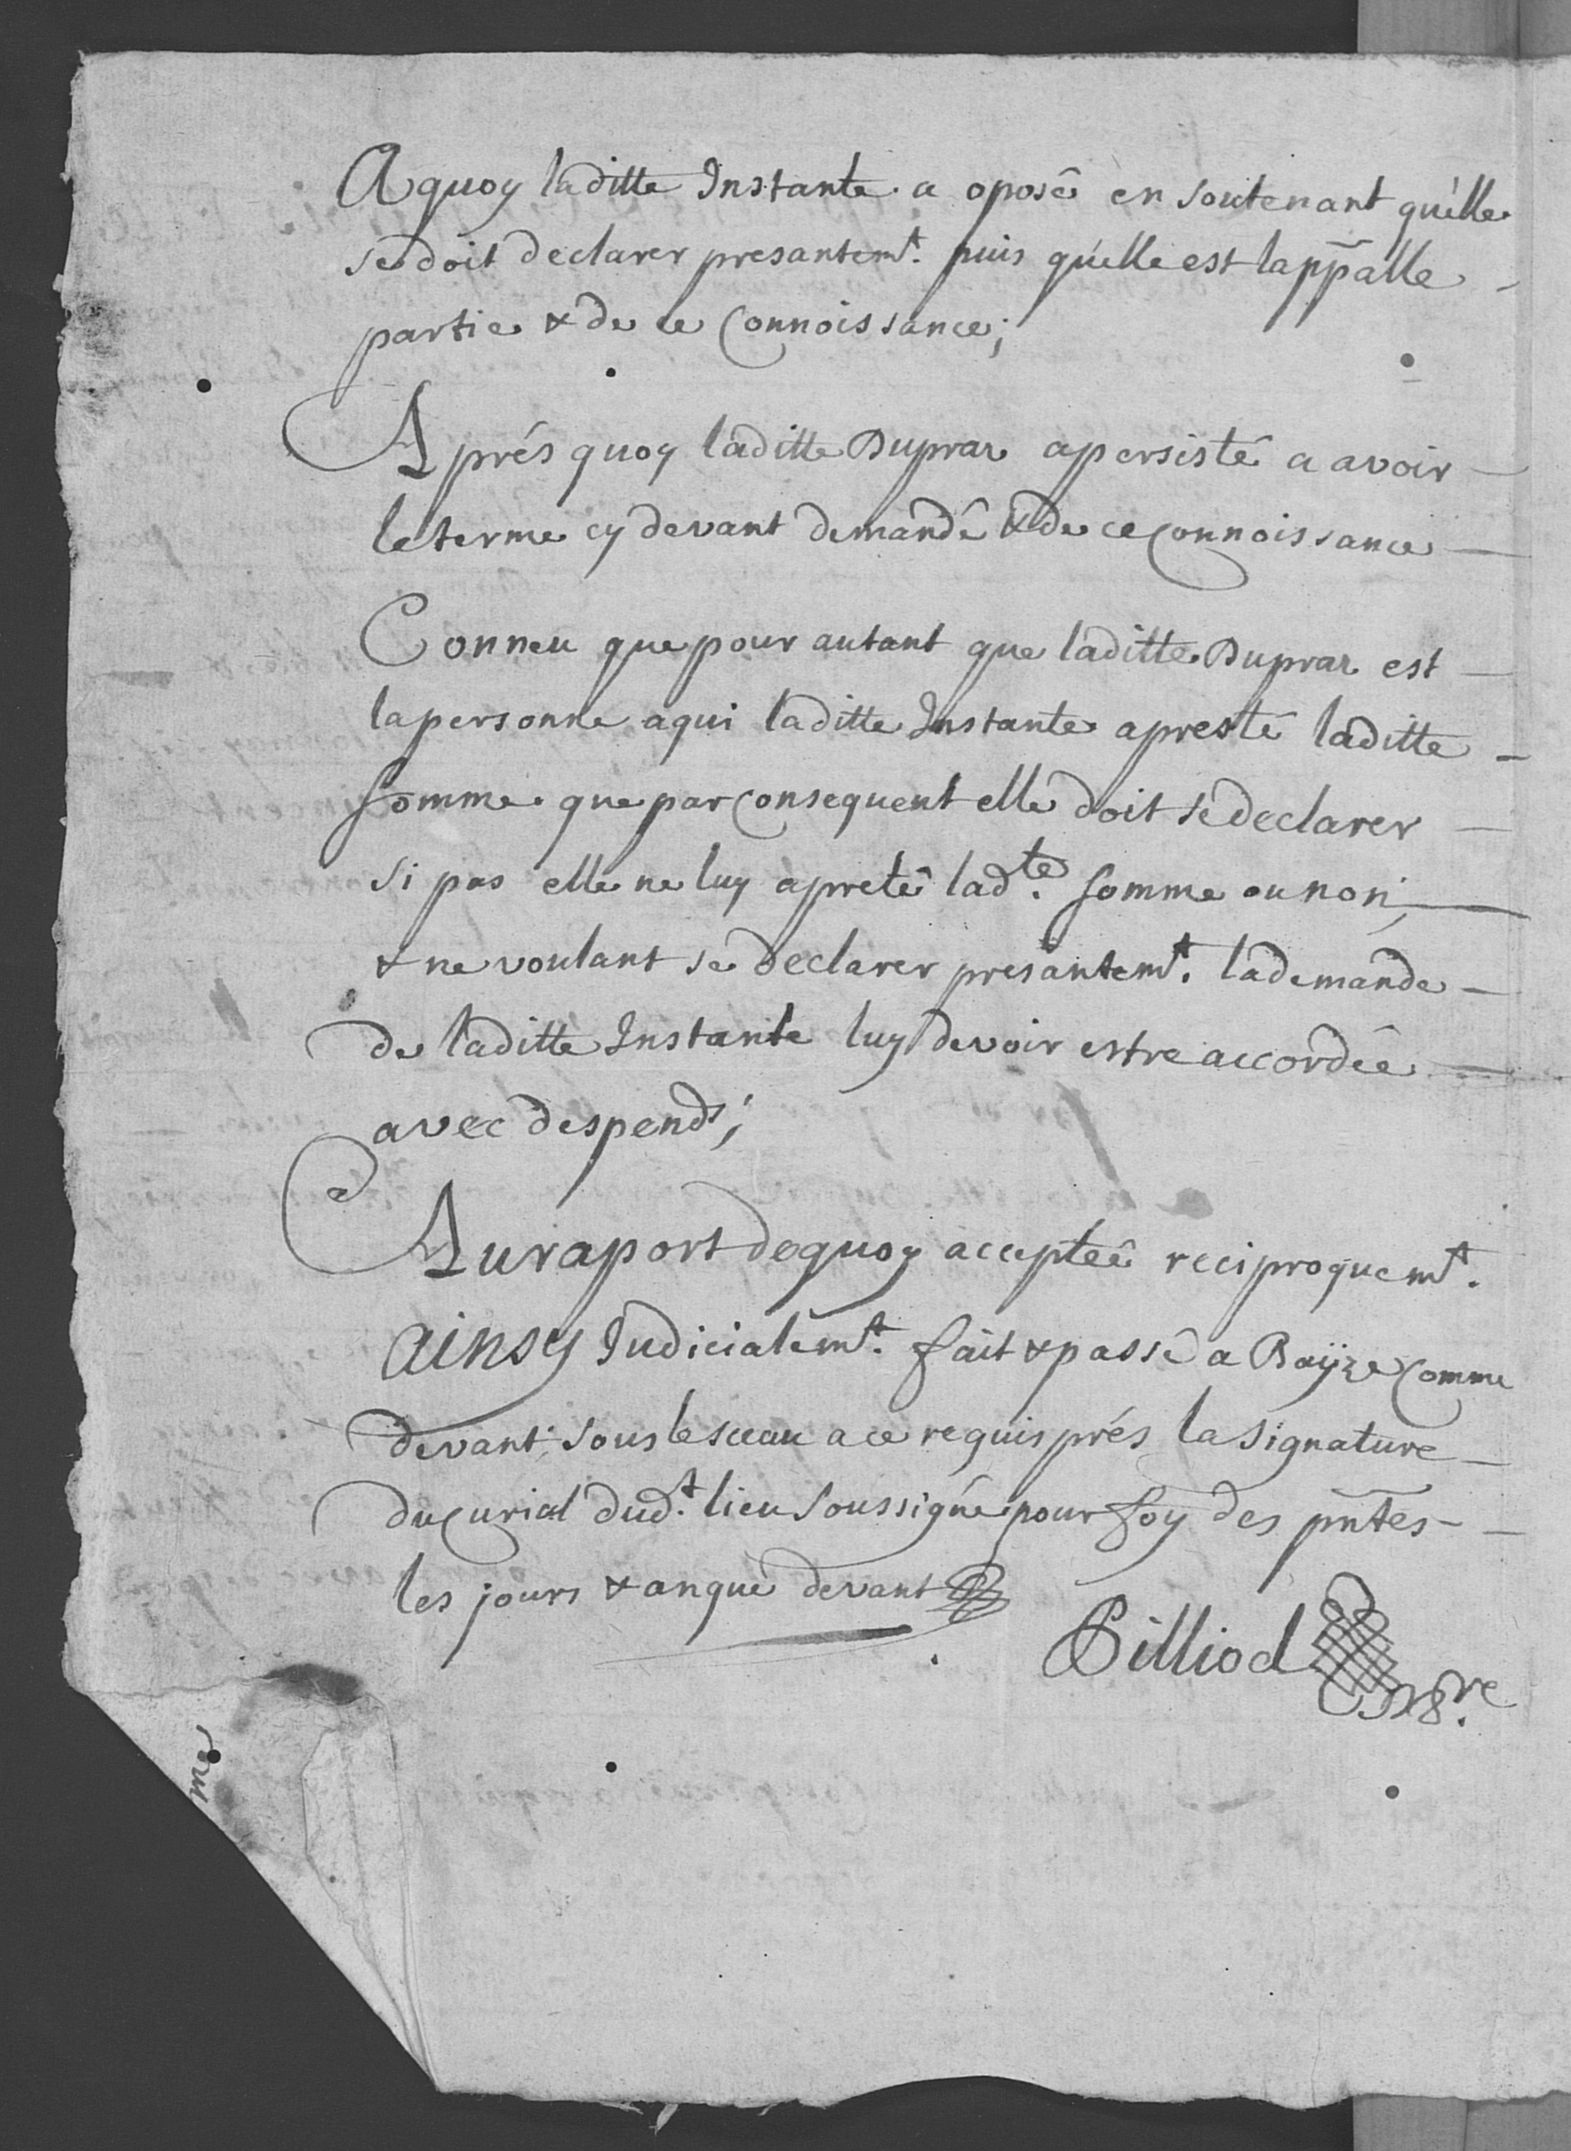 A quoy laditte Instante a oposê en soutenant qu'elle
se doit declarer presantem.t puis qu'elle est la pp̃alle
partie & de ce Connoissance;
Aprés quoy laditte Duprar a persistê a avoir
le terme cy devant demandê & de ce Connoissance
Conneu que pour autant que laditte Duprar est
la personne a qui laditte Instante a prestê laditte
somme que par Consequent elle doit se declarer
si pas elle ne luy a pretê lad.te somme ou non,
& ne voulant se declarer presantem.t la demande
de laditte Instante luy devoir estre accordêe
avec despends;
Au raport de quoy acceptêe reciproquem.t
Ainsy Judicialem.t fait & passê a Bayze Comme
devant, sous le sceau a ce requis prés la signature
du Curial dud.t lieu soussignê pour foy des pñtes
les jours & an que devant
Pilliod
me